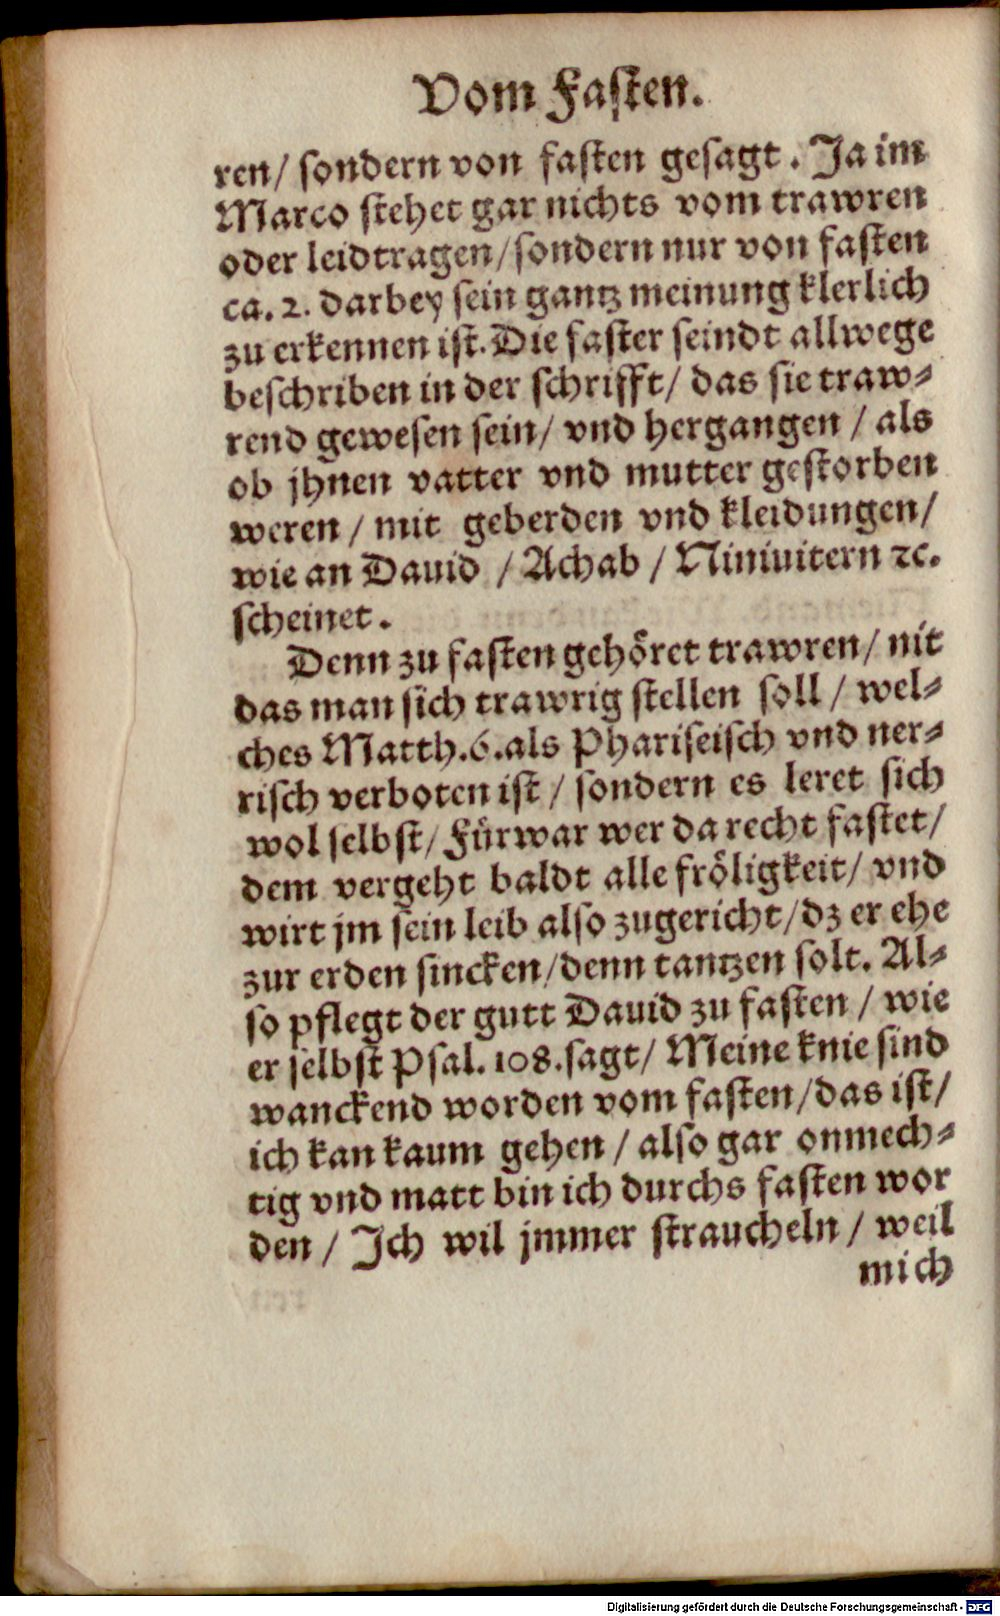 Vom Fasten.
ren/ sondern von fasten gesagt. Ja im
Marco stehet gar nichts vom trawren
oder leidtragen/sondern nur von fasten
ca. 2. darbey sein gantz meinung klerlich
zu erkennen ist. Die faster seindt allwege
beschriben in der schrifft/ das sie traw⸗
rend gewesen sein/ vnd hergangen / als
ob jhnen vatter vnd mutter gestorben
weren / mit geberden vnd kleidungen/
wie an Dauid / Achab / Niniuitern ꝛc.
scheinet.
Denn zu fasten gehöret trawren/ nit
das man sich trawrig stellen soll / wel⸗
ches Matth.6.als Phariseisch vnd ner⸗
risch verboten ist / sondern es leret sich
wol selbst/ Fürwar wer da recht fastet/
dem vergeht baldt alle fröligkeit/ vnd
wirt jm sein leib also zugericht/dz er ehe
zur erden sincken/denn tantzen solt. Al⸗
so pflegt der gutt Dauid zu fasten / wie
er selbst Psal. 108.sagt/ Meine knie sind
wanckend worden vom fasten/das ist/
ich kan kaum gehen / also gar onmech⸗
tig vnd matt bin ich durchs fasten wor
den / Jch wil jmmer straucheln / weil
mich
Digitalisierung gefördert durch die Deutsche Forschungsgemeinschaft - DFG